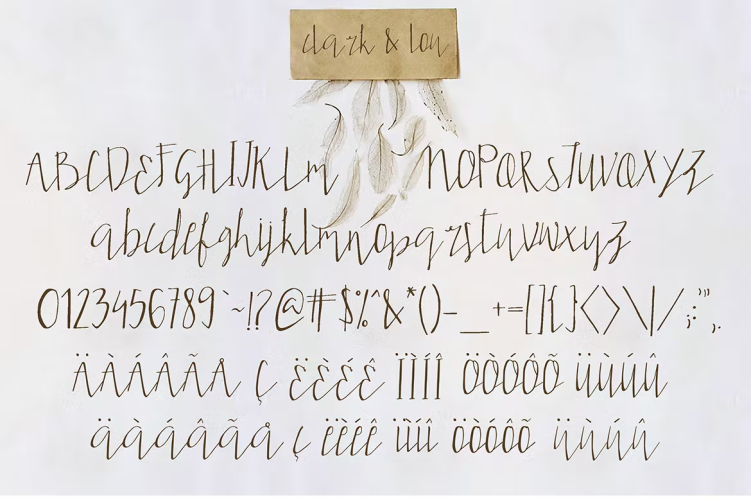 dark & lou
ABCDEFGHIJKLM NOPQRSTUVWXYZ
abcdefghijklmnopqrstuvwxyz
0123456789`~!?@#$%^&*()-_+=[]{}<>\|/;:'",.
ÄÀÁÂÃÅ Ç ËÈÉÊ ÏÌÍÎ ÖÒÓÔÕ ÜÙÚÛ
äàáâãå ç ëèéê ïìíî öòóôõ üùúû